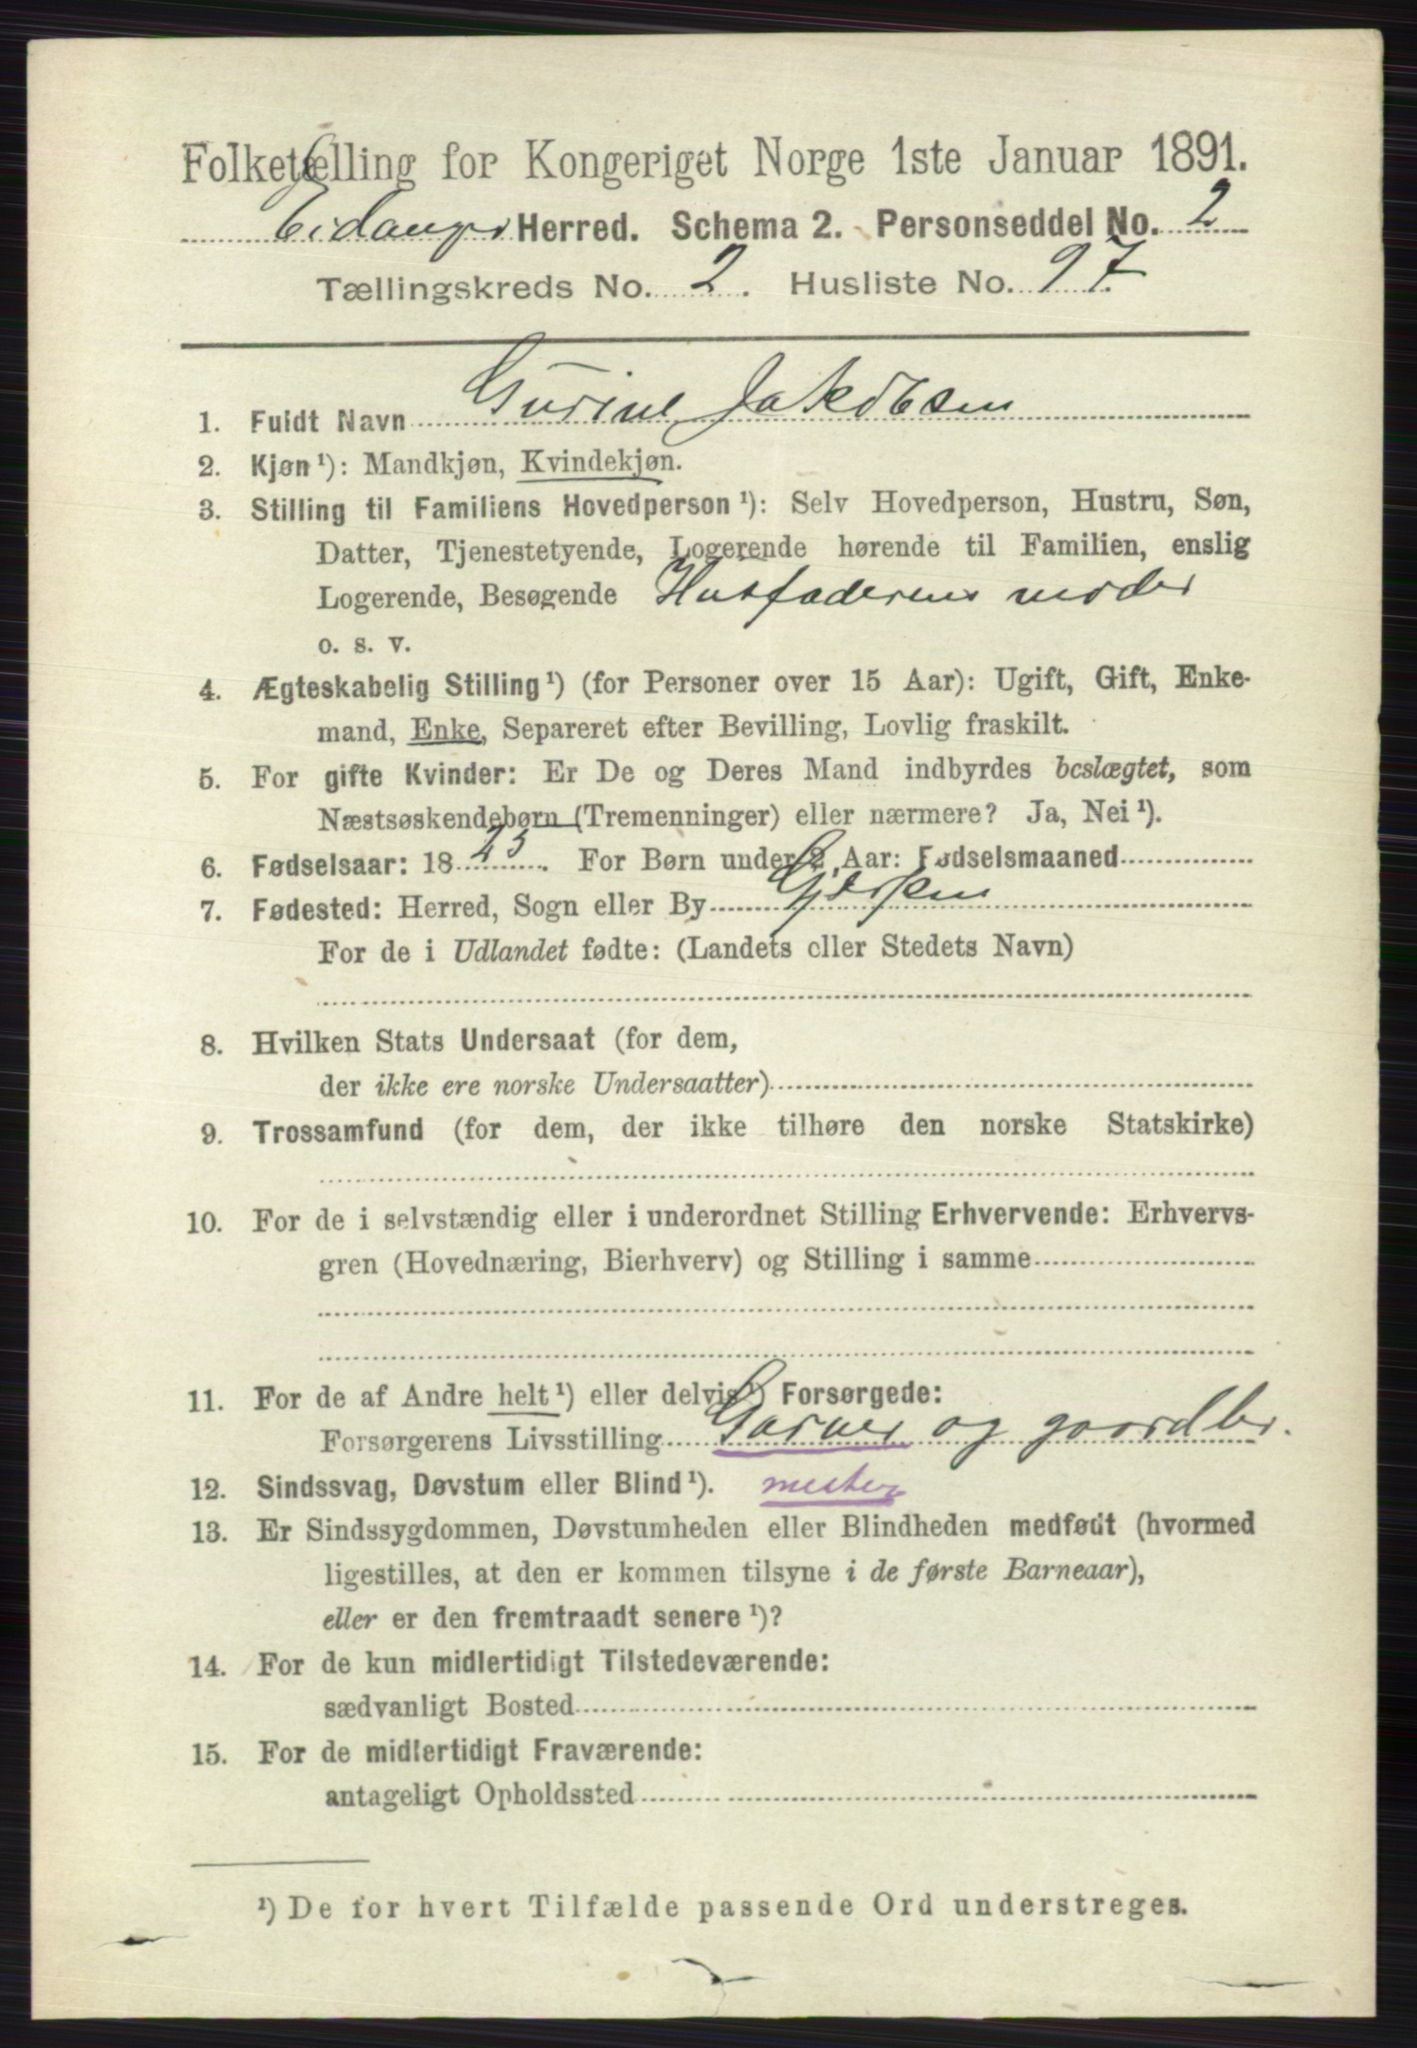 Folketælling for Kongeriget Norge 1ste Januar 1891.
Eidanger Herred. Schema 2. Personseddel No. 2
Tællingskreds No. 2. Husliste No. 97.
1. Fuldt Navn Gurine Jakobsen
2. Kjøn ¹): Mandkjøn, Kvindekjøn.
3. Stilling til Familiens Hovedperson ¹): Selv Hovedperson, Hustru, Søn,
Datter, Tjenestetyende, Logerende hørende til Familien, enslig
Logerende, Besøgende Husfaderens moder
o. s. v.
4. Ægteskabelig Stilling ¹) (for Personer over 15 Aar): Ugift, Gift, Enke-
mand, Enke, Separeret efter Bevilling, Lovlig fraskilt.
5. For gifte Kvinder: Er De og Deres Mand indbyrdes beslægtet, som
Næstsøskendebørn (Tremenninger) eller nærmere? Ja, Nei ¹).
6. Fødselsaar: 1825. For Børn under 2 Aar: Fødselsmaaned
7. Fødested: Herred, Sogn eller By Gjerpen
For de i Udlandet fødte: (Landets eller Stedets Navn)
8. Hvilken Stats Undersaat (for dem,
der ikke ere norske Undersaatter)
9. Trossamfund (for dem, der ikke tilhøre den norske Statskirke)
10. For de i selvstændig eller i underordnet Stilling Erhvervende: Erhvervs-
gren (Hovednæring, Bierhverv) og Stilling i samme
11. For de af Andre helt ¹) eller delvis ¹) Forsørgede:
Forsørgerens Livsstilling Garver og gaardbr.
12. Sindssvag, Døvstum eller Blind ¹). mester
13. Er Sindssygdommen, Døvstumheden eller Blindheden medfødt (hvormed
ligestilles, at den er kommen tilsyne i de første Barneaar),
eller er den fremtraadt senere ¹)?
14. For de kun midlertidigt Tilstedeværende:
sædvanligt Bosted
15. For de midlertidigt Fraværende:
antageligt Opholdssted
¹) De for hvert Tilfælde passende Ord understreges.